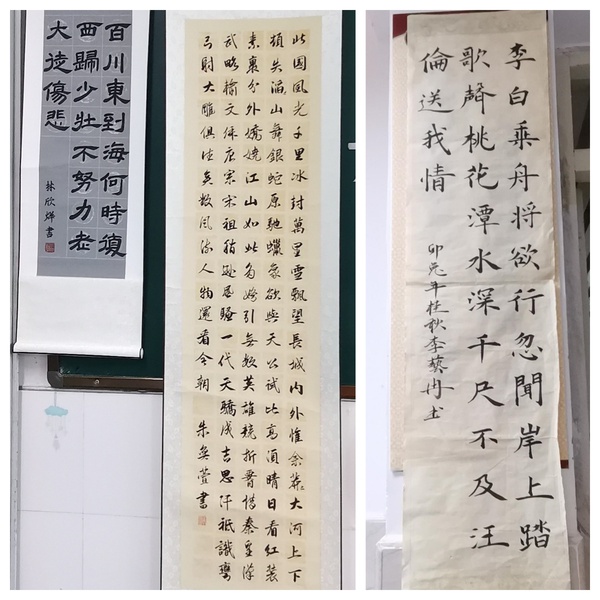 百川東到海何時復
西歸少壯不努力老
大徒傷悲
林欣燁書
北國風光千里冰封萬里雪飄望長城内外惟余莽々大河上下
頓失滔々山舞銀蛇原馳蠟象欲與天公試比高須晴日看紅裝
素裹分外嬌嬈江山如此多嬌引無數英雄競折腰惜秦皇漢
武略輸文采唐宗宋祖稍遜風騷一代天驕成吉思汗祗識彎
弓射大雕俱往矣數風流人物還看今朝 朱奕萱書
李白乘舟將欲行忽聞岸上踏
歌聲桃花潭水深千尺不及汪
倫送我情
卯兔年桂秋李藝冉書